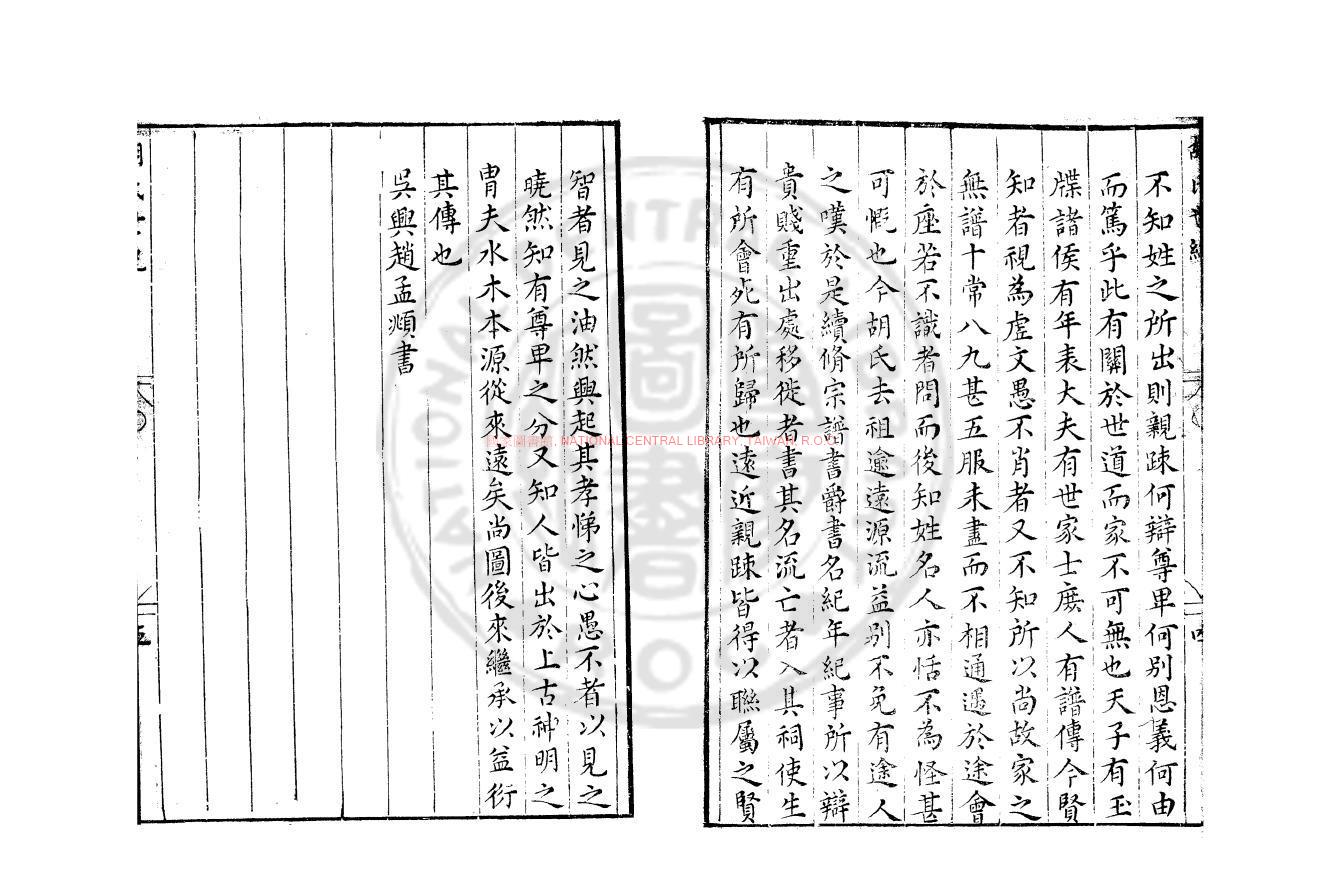 不知姓之所出則親踈何辯尊卑何別恩義何由
而篤乎此有關於世道而家不可無也天子有玉
牒諸侯有年表大夫有世家士庶人有譜傳今賢
知者視為虛文愚不肖者又不知所以尚故家之
無譜十常八九甚五服未盡而不相通遇於途會
於座若不識者問而後知姓名人亦恬不為怪甚
可慨也今胡氏去祖逾遠源流益別不免有途人
之嘆於是續脩宗譜書爵書名紀年紀事所以辯
貴賤重出處移徙者書其名流亡者入其祠使生
有所會死有所歸也遠近親踈皆得以聯屬之賢
四
智者見之油然興起其孝悌之心愚不者以見之
曉然知有尊卑之分又知人皆出於上古神明之
冑夫水木本源從來遠矣尚圖後來繼承以益衍
其傳也
吳興趙孟頫書
五
國家圖書館, NATIONAL CENTRAL LIBRARY, TAIWAN, R.O.C